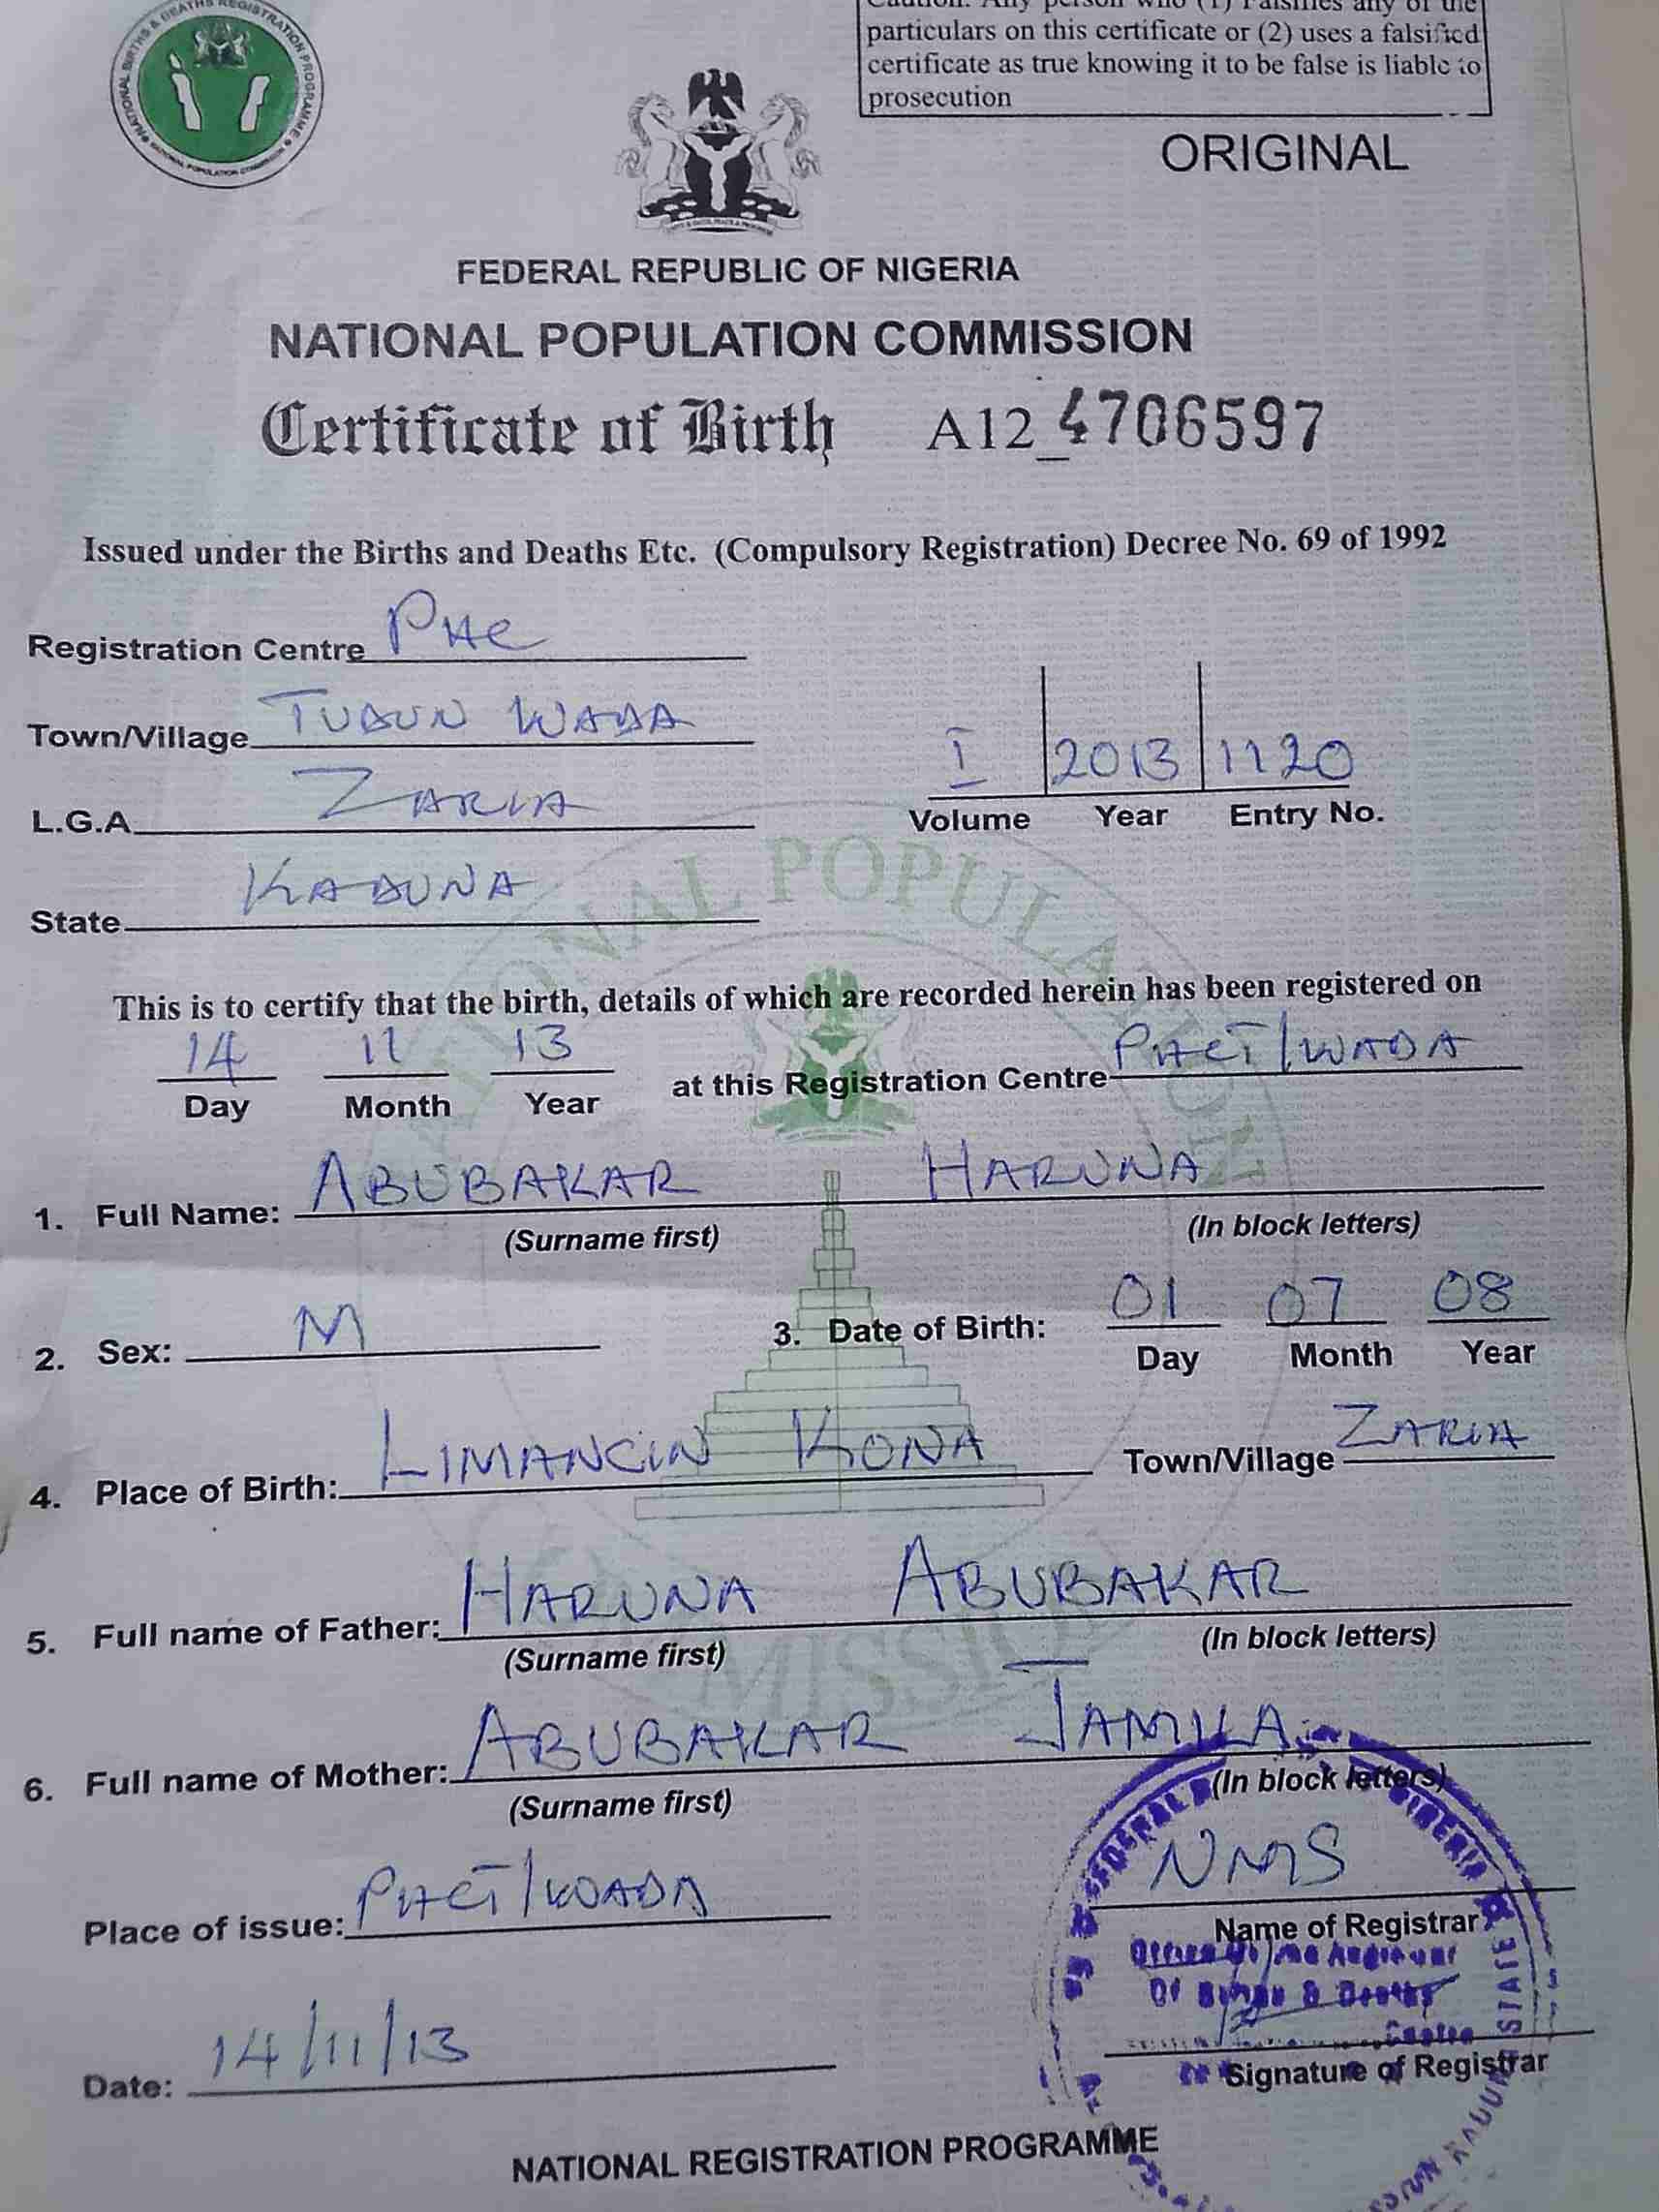 NATIONAL BIRTHS & DEATHS REGISTRATION PROGRAMME
NATIONAL POPULATION COMMISSION
Caution: Any person who (1) Falsifies any of the
particulars on this certificate or (2) uses a falsified
certificate as true knowing it to be false is liable to
prosecution
ORIGINAL
FEDERAL REPUBLIC OF NIGERIA
NATIONAL POPULATION COMMISSION
Certificate of Birth A12_4706597
Issued under the Births and Deaths Etc. (Compulsory Registration) Decree No. 69 of 1992
Registration Centre PHC
Town/Village TUDUN WADA
L.G.A ZARIA
State KADUNA
I 2013 1120
Volume Year Entry No.
NATIONAL POPULATION
This is to certify that the birth, details of which are recorded herein has been registered on
14 11 13 at this Registration Centre PHCT/WADA
Day Month Year
1. Full Name: ABUBAKAR HARUNA
(Surname first) (In block letters)
2. Sex: M 3. Date of Birth: 01 07 08
Day Month Year
4. Place of Birth: LIMANCIN KONA Town/Village ZARIA
5. Full name of Father: HARUNA ABUBAKAR
(Surname first) (In block letters)
6. Full name of Mother: ABUBAKAR JAMILA
(Surname first) (In block letters)
Place of issue: PHCT/WADA NMS
Name of Registrar
Date: 14/11/13
Signature of Registrar
NATIONAL REGISTRATION PROGRAMME